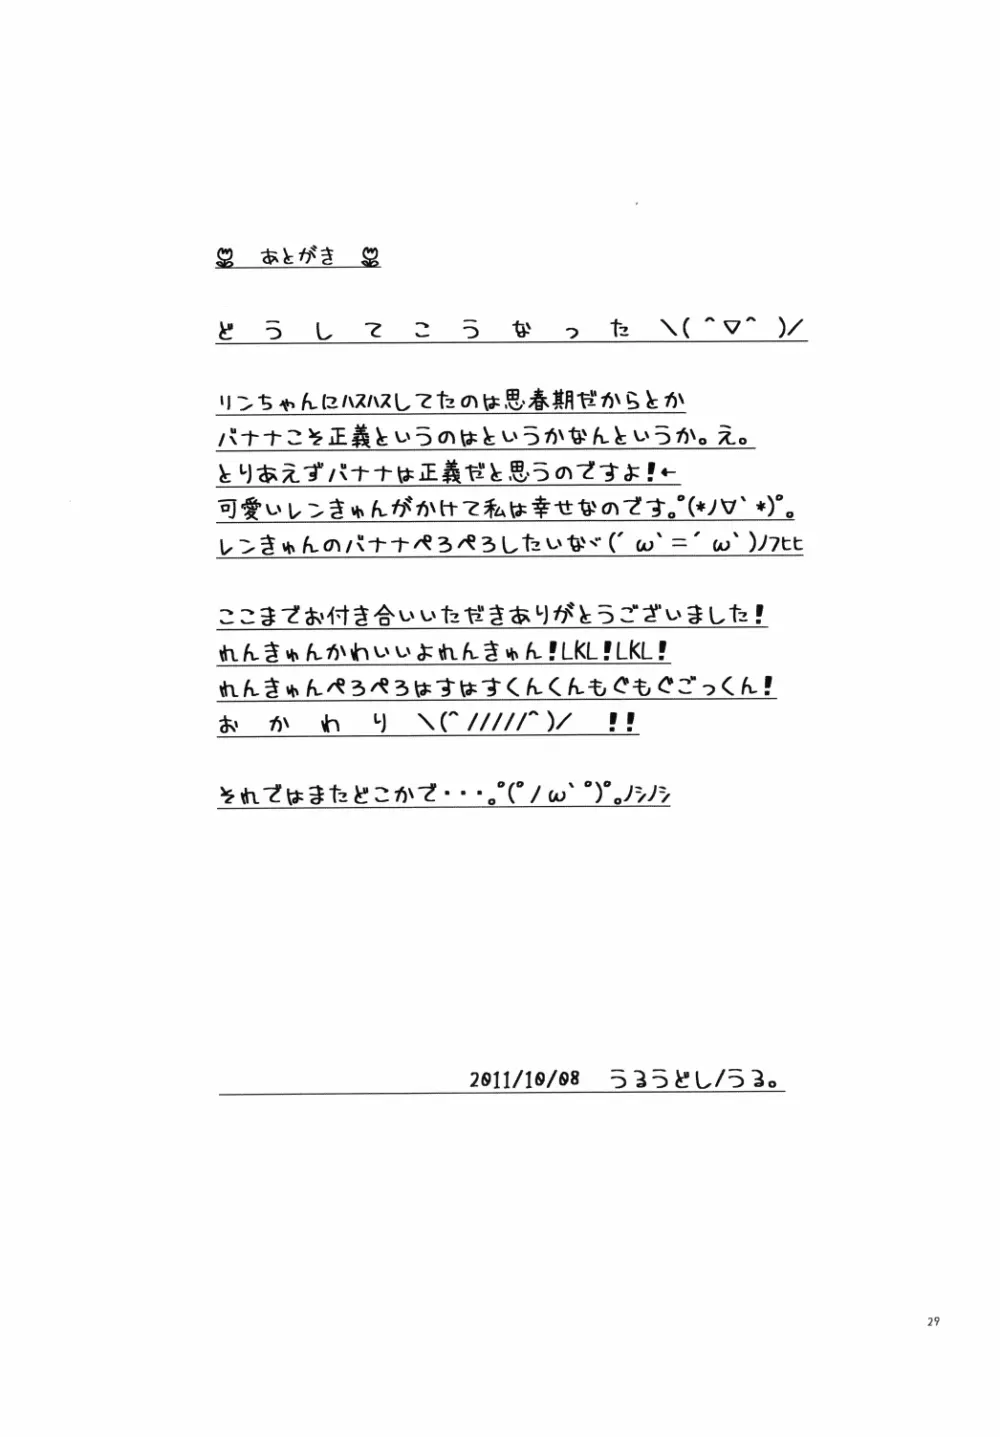 あとがき
どうしてこうなった＼( ^▽^ )／
リンちゃんにﾊｽﾊｽしてたのは思春期だからとか
バナナこそ正義というのはというかなんというか。え。
とりあえずバナナは正義だと思うのですよ！←
可愛いレンきゅんがかけて私は幸せなのです｡ﾟ(*ﾉ∀`*)ﾟ｡
レンきゅんのバナナぺろぺろしたいなぐ(´ω`=´ω`)ﾉﾌﾋﾋ
ここまでお付き合いいただきありがとうございました！
れんきゅんかわいいよれんきゅん！LKL！LKL！
れんきゅんぺろぺろはすはすくんくんもぐもぐごっくん！
おかわり＼(^/////^)／ ！！
それではまたどこかで・・・｡ﾟ(ﾟﾉω`ﾟ)ﾟ｡ﾉｼﾉｼ
2011/10/08 うるうどし/うる。
29